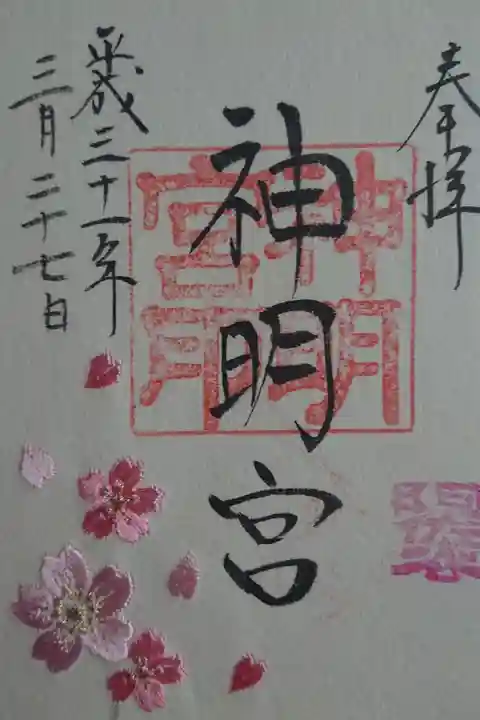 奉拝
神明宮
平成三十一年
三月二十七日
神明
宮用